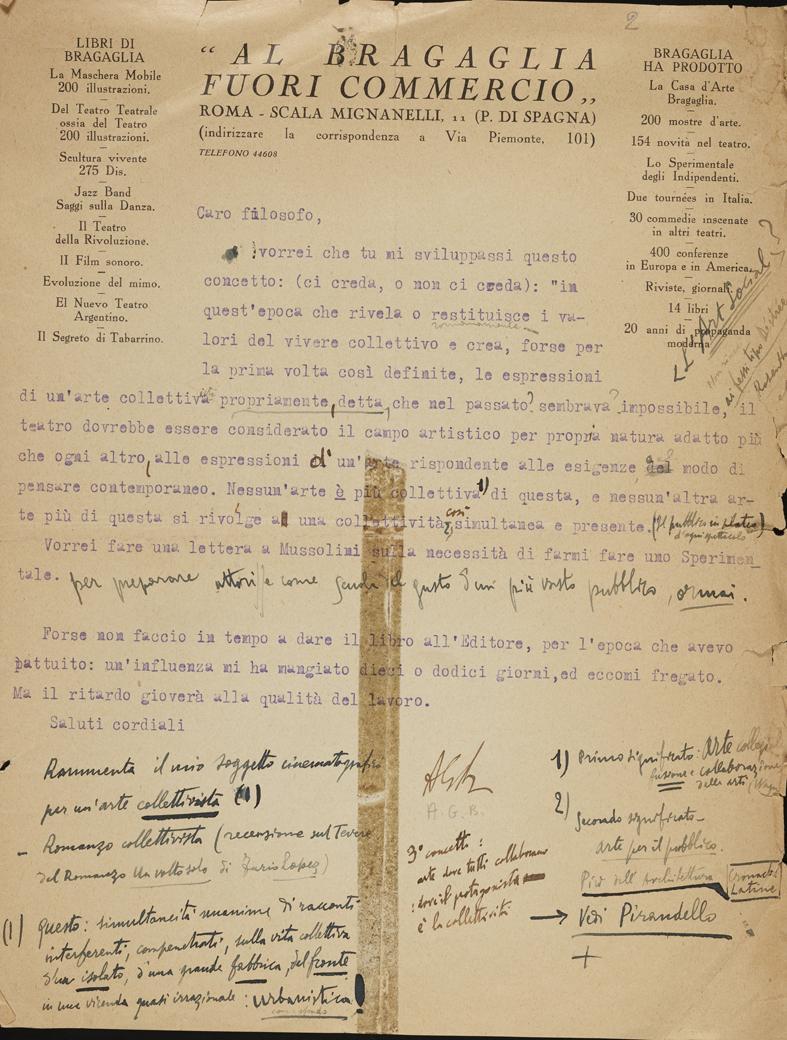 2
LIBRI DI
BRAGAGLIA
La Maschera Mobile
200 illustrazioni.
Del Teatro Teatrale
ossia del Teatro
200 illustrazioni.
Scultura vivente
275 Dis.
Jazz Band
Saggi sulla Danza.
Il Teatro
della Rivoluzione.
Il Film sonoro.
Evoluzione del mimo.
El Nuevo Teatro
Argentino.
Il Segreto di Tabarrino.
"AL BRAGAGLIA
FUORI COMMERCIO„
ROMA - SCALA MIGNANELLI, 11 (P. DI SPAGNA)
(indirizzare la corrispondenza a Via Piemonte, 101)
TELEFONO 44608
BRAGAGLIA
HA PRODOTTO
La Casa d'Arte
Bragaglia.
200 mostre d'arte.
154 novità nel teatro.
Lo Sperimentale
degli Indipendenti.
Due tournées in Italia.
30 commedie inscenate
in altri teatri.
400 conferenze
in Europa e in America.
Riviste, giornali.
14 libri
20 anni di propaganda
moderna
L'Art Social?
Caro filosofo,
vorrei che tu mi sviluppassi questo
concetto: (ci creda, o non ci creda): "in
quest'epoca che rivela o restituisce i va-
romanamente
lori del vivere collettivo e crea, forse per
la prima volta così definite, le espressioni
di un'arte collettiva propriamente, detta, che nel passato? sembrava? impossibile, il
teatro dovrebbe essere considerato il campo artistico per propria natura adatto più
che ogni altro, alle espressioni d'un'arte rispondente alle esigenze del modo di
pensare contemporaneo. Nessun'arte è più collettiva 1) di questa, e nessun'altra ar-
te più di questa si rivolge a una collettività così 2) simultanea e presente. (Il pubblico in platea
d'ogni spettacolo)
Vorrei fare una lettera a Mussolini sulla necessità di farmi fare uno Sperimen
tale. per preparare attori e come scuola del gusto d'un più vasto pubblico, ormai.
Forse non faccio in tempo a dare il libro all'Editore, per l'epoca che avevo
pattuito: un'influenza mi ha mangiato dieci o dodici giorni,ed eccomi fregato.
Ma il ritardo gioverà alla qualità del lavoro.
Saluti cordiali
AGB
A.G.B.
Rammenta il mio soggetto cinematografico
per un'arte collettivista (1)
- Romanzo collettivista (recensione sul Tevere
del Romanzo Un volto solo di Furio Lopez)
(1) Questo: simultaneità unanime di racconti
interferenti, compenetrati, sulla vita collettiva
d'un isolato, d'una grande fabbrica, del fronte
in una vicenda quasi irrazionale: urbanistica!
3° concetto:
arte dove tutti collaborano
: dove il protagonista
è la collettività
1) Primo significato: Arte
fusione e collaborazione
delle arti
2) Secondo significato -
arte per il pubblico.
Più dell'Architettura
Cronache
Latine
→ Vedi Pirandello
+